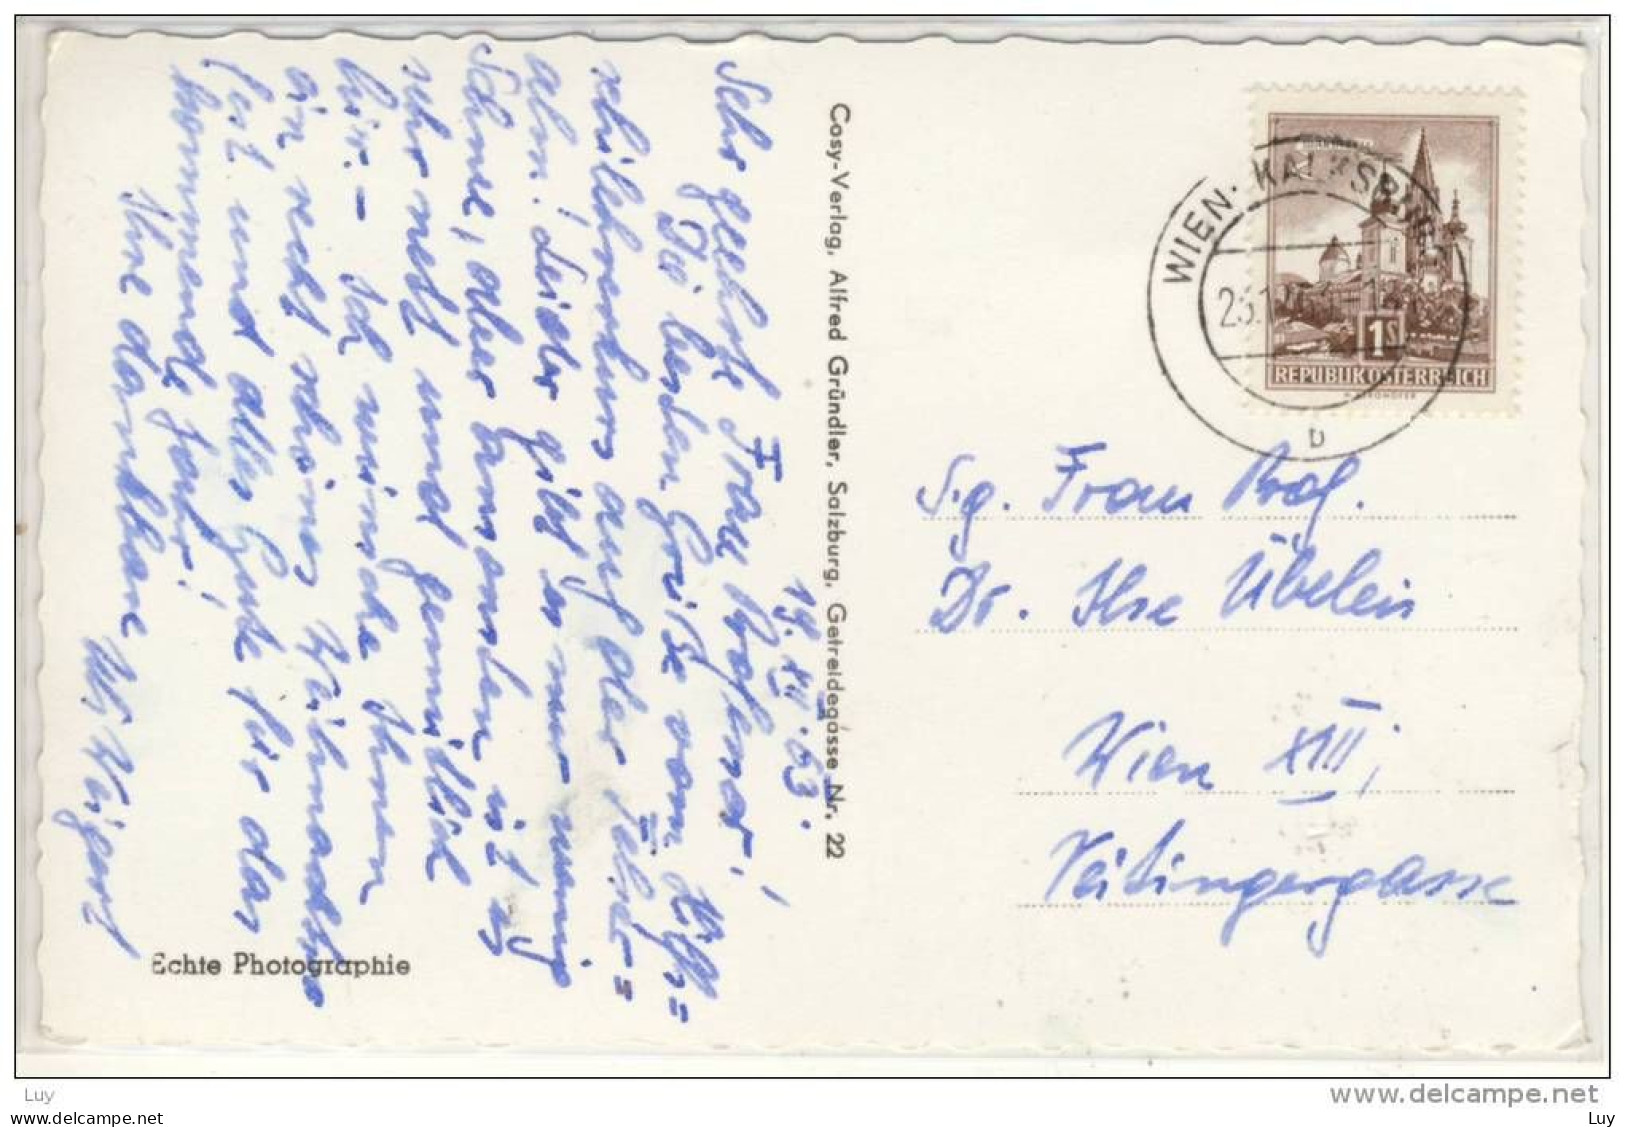 19.XII.63.
Sehr geehrte Frau Professor!
Die besten Grüße vom
schilehrerkurs auf der
alm! Leider gibt es nur wenig
Schnee, aber ansonsten ist es
sehr nett und gemütlich
hier. - Ich wünsche Ihnen
ein recht schönes Weihnachts
fest und alles Gute für das
kommende Jahr!
Ihre dankbare
Echte Photographie
Cosy-Verlag, Alfred Gründler, Salzburg, Getreidegasse Nr. 22
WIEN-KALKSBURG
b
1S
REPUBLIK ÖSTERREICH
S.g. Frau Prof.
Dr. Ilse Übelein
Wien XIII,
Veitingergasse
delcampe.net
Luy
Luy
www.delcampe.net
Luy